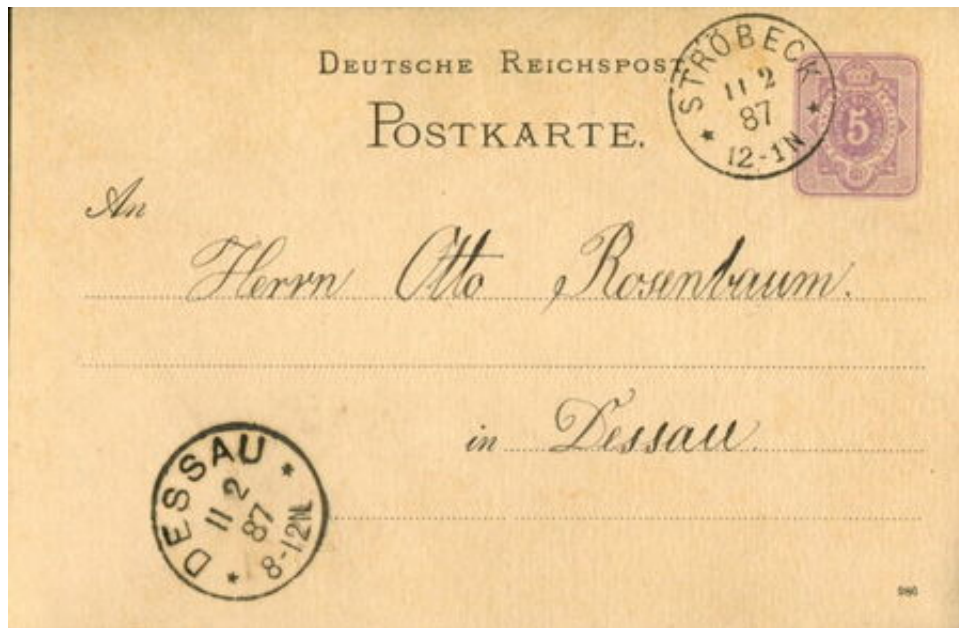 DEUTSCHE REICHSPOST
POSTKARTE.
STRÖBECK
11 2
87
12-1N
5
An
Herrn Otto Rosenbaum.
in Dessau.
DESSAU
11 2
87
8-12N.